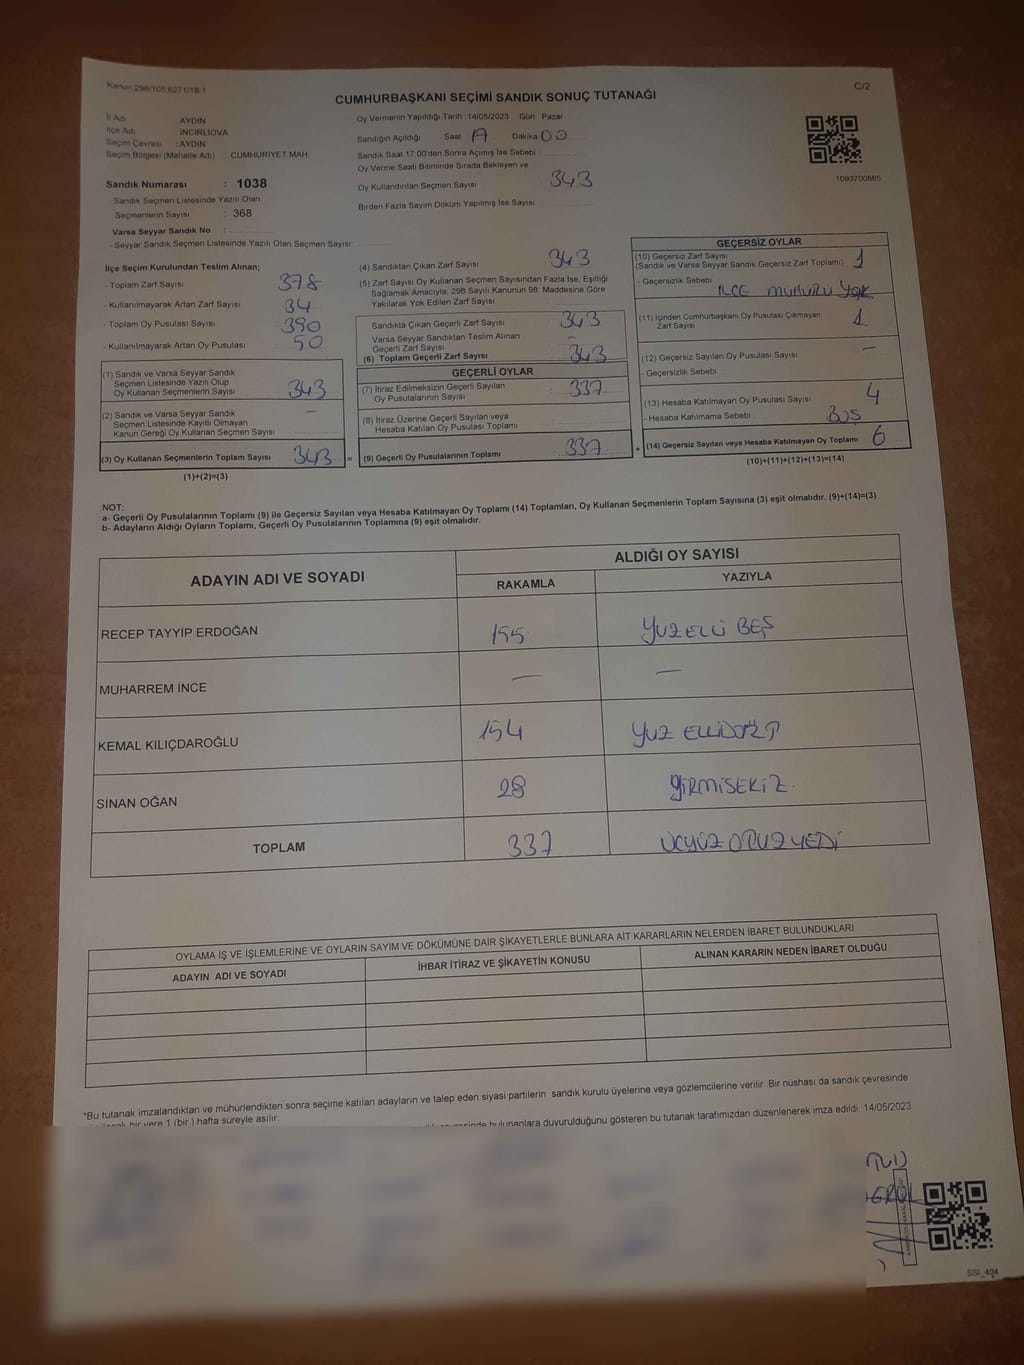 Kanun:298/105;6271/18-1
C/2
CUMHURBAŞKANI SEÇİMİ SANDIK SONUÇ TUTANAĞI
İl Adı AYDIN
İlçe Adı İNCİRLİOVA
Seçim Çevresi : AYDIN
Seçim Bölgesi (Mahalle Adı) CUMHURİYET MAH.
Sandık Numarası : 1038
Sandık Seçmen Listesinde Yazılı Olan
Seçmenlerin Sayısı : 368
Varsa Seyyar Sandık No :
- Seyyar Sandık Seçmen Listesinde Yazılı Olan Seçmen Sayısı:
Oy Vermenin Yapıldığı Tarih :14/05/2023 Gün Pazar
Sandığın Açıldığı Saat Dakika 00
Sandık Saat 17:00'den Sonra Açımış İse Sebebi
Oy Verme Saati Bitiminde Sırada Bekleyen ve
Oy Kullandırılan Seçmen Sayısı 343
Birden Fazla Sayım Döküm Yapılmış İse Sayısı
1093700885
İlçe Seçim Kurulundan Teslim Alınan;
- Toplam Zarf Sayısı 378
- Kullanılmayarak Artan Zarf Sayısı 34
- Toplam Oy Pusulası Sayısı 390
- Kullanılmayarak Artan Oy Pusulası 50
(1) Sandık ve Varsa Seyyar Sandık
Seçmen Listesinde Yazılı Olup
Oy Kullanan Seçmenlerin Sayısı 343
(2) Sandık ve Varsa Seyyar Sandık
Seçmen Listesinde Kayıtlı Olmayan
Kanun Gereği Oy Kullanan Seçmen Sayısı –
(3) Oy Kullanan Seçmenlerin Toplam Sayısı 343 =
(1)+(2)=(3)
(4) Sandıktan Çıkan Zarf Sayısı 343
(5) Zarf Sayısı Oy Kullanan Seçmen Sayısından Fazla İse, Eşitliği
Sağlamak Amacıyla, 298 Sayılı Kanunun 98. Maddesine Göre
Yakılarak Yok Edilen Zarf Sayısı
Sandıkta Çıkan Geçerli Zarf Sayısı 343
Varsa Seyyar Sandıktan Teslim Alınan
Geçerli Zarf Sayısı –
(6) Toplam Geçerli Zarf Sayısı 343
GEÇERLİ OYLAR
(7) İtiraz Edilmeksizin Geçerli Sayılan
Oy Pusulalarının Sayısı 337
(8) İtiraz Üzerine Geçerli Sayılan veya
Hesaba Katılan Oy Pusulası Toplamı
(9) Geçerli Oy Pusulalarının Toplamı 337 +
GEÇERSİZ OYLAR
(10) Geçersiz Zarf Sayısı
(Sandık ve Varsa Seyyar Sandık Geçersiz Zarf Toplamı) 1
- Geçersizlik Sebebi
İLÇE MÜHÜRÜ YOK
(11) İçinden Cumhurbaşkanı Oy Pusulası Çıkmayan
Zarf Sayısı 1
(12) Geçersiz Sayılan Oy Pusulası Sayısı –
- Geçersizlik Sebebi
(13) Hesaba Katılmayan Oy Pusulası Sayısı 4
- Hesaba Katılmama Sebebi BOŞ
(14) Geçersiz Sayılan veya Hesaba Katılmayan Oy Toplamı 6
(10)+(11)+(12)+(13)=(14)
NOT:
a- Geçerli Oy Pusulalarının Toplamı (9) ile Geçersiz Sayılan veya Hesaba Katılmayan Oy Toplamı (14) Toplamları, Oy Kullanan Seçmenlerin Toplam Sayısına (3) eşit olmalıdır. (9)+(14)=(3)
b- Adayların Aldığı Oyların Toplamı, Geçerli Oy Pusulalarının Toplamına (9) eşit olmalıdır.
ADAYIN ADI VE SOYADI ALDIĞI OY SAYISI
RAKAMLA YAZIYLA
RECEP TAYYİP ERDOĞAN 155 YÜZELLİ BEŞ
MUHARREM İNCE – –
KEMAL KILIÇDAROĞLU 154 YÜZ ELLİDÖRT
SİNAN OĞAN 28 YİRMİSEKİZ.
TOPLAM 337 ÜÇYÜZ OTUZ YEDİ
OYLAMA İŞ VE İŞLEMLERİNE VE OYLARIN SAYIM VE DÖKÜMÜNE DAİR ŞİKAYETLERLE BUNLARA AİT KARARLARIN NELERDEN İBARET BULUNDUKLARI
ADAYIN ADI VE SOYADI İHBAR İTİRAZ VE ŞİKAYETİN KONUSU ALINAN KARARIN NEDEN İBARET OLDUĞU
*Bu tutanak imzalandıktan ve mühürlendikten sonra seçime katılan adayların ve talep eden siyasi partilerin sandık kurulu üyelerine veya gözlemcilerine verilir .Bir nüshası da sandık çevresinde
bir yere 1 (bir ) hafta süreyle asılır.
bulunanlara duyurulduğunu gösteren bu tutanak tarafımızdan düzenlenerek imza edildi. 14/05/2023
SSI_404